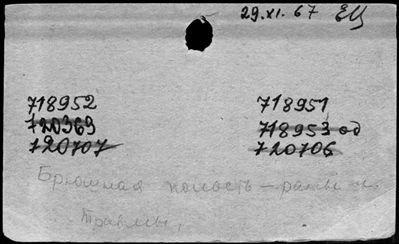 29.XI.67 ЕЦ
718952 718951
720369 718953 од
720707 720706
Брюшная полость – раны и
травмы,